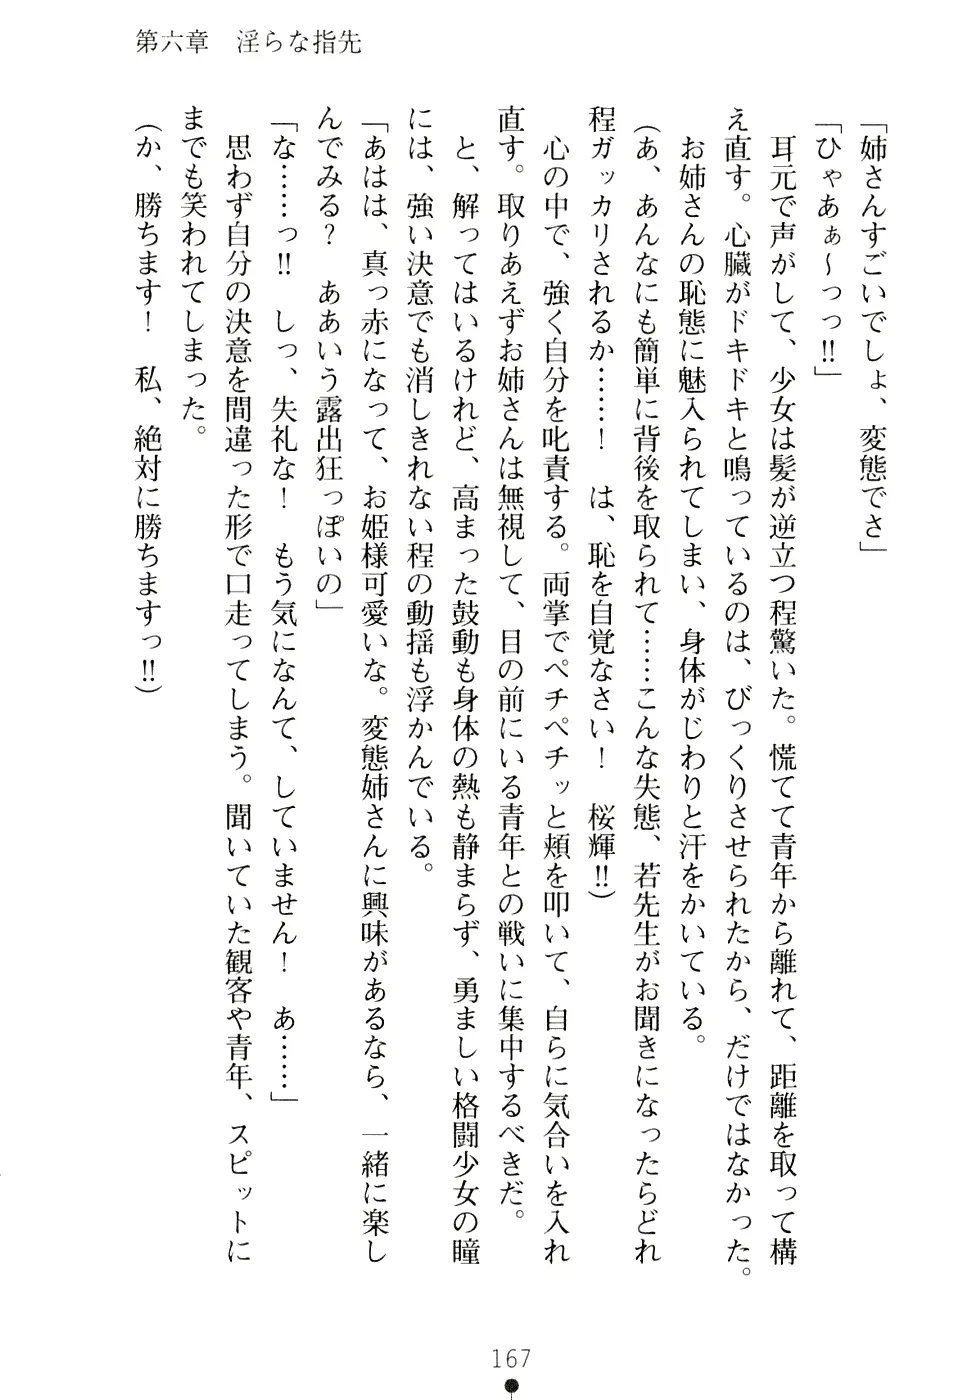 第六章　淫らな指先
「姉さんすごいでしょ、変態でさ」
「ひゃあぁ～っっ!!」
　耳元で声がして、少女は髪が逆立つ程驚いた。慌てて青年から離れて、距離を取って構
え直す。心臓がドキドキと鳴っているのは、びっくりさせられたから、だけではなかった。
　お姉さんの恥態に魅入られてしまい、身体がじわりと汗をかいている。
（あ、あんなにも簡単に背後を取られて……こんな失態、若先生がお聞きになったらどれ
程ガッカリされるか……！　は、恥を自覚なさい！　桜輝!!）
　心の中で、強く自分を叱責する。両掌でペチペチッと頬を叩いて、自らに気合いを入れ
直す。取りあえずお姉さんは無視して、目の前にいる青年との戦いに集中するべきだ。
　と、解ってはいるけれど、高まった鼓動も身体の熱も静まらず、勇ましい格闘少女の瞳
には、強い決意でも消しきれない程の動揺も浮かんでいる。
「あはは、真っ赤になって、お姫様可愛いな。変態姉さんに興味があるなら、一緒に楽し
んでみる？　ああいう露出狂っぽいの」
「な……っ!!　しっ、失礼な！　もう気になんて、していません！　あ……」
　思わず自分の決意を間違った形で口走ってしまう。聞いていた観客や青年、スピットに
までも笑われてしまった。
（か、勝ちます！　私、絶対に勝ちますっ!!）
167